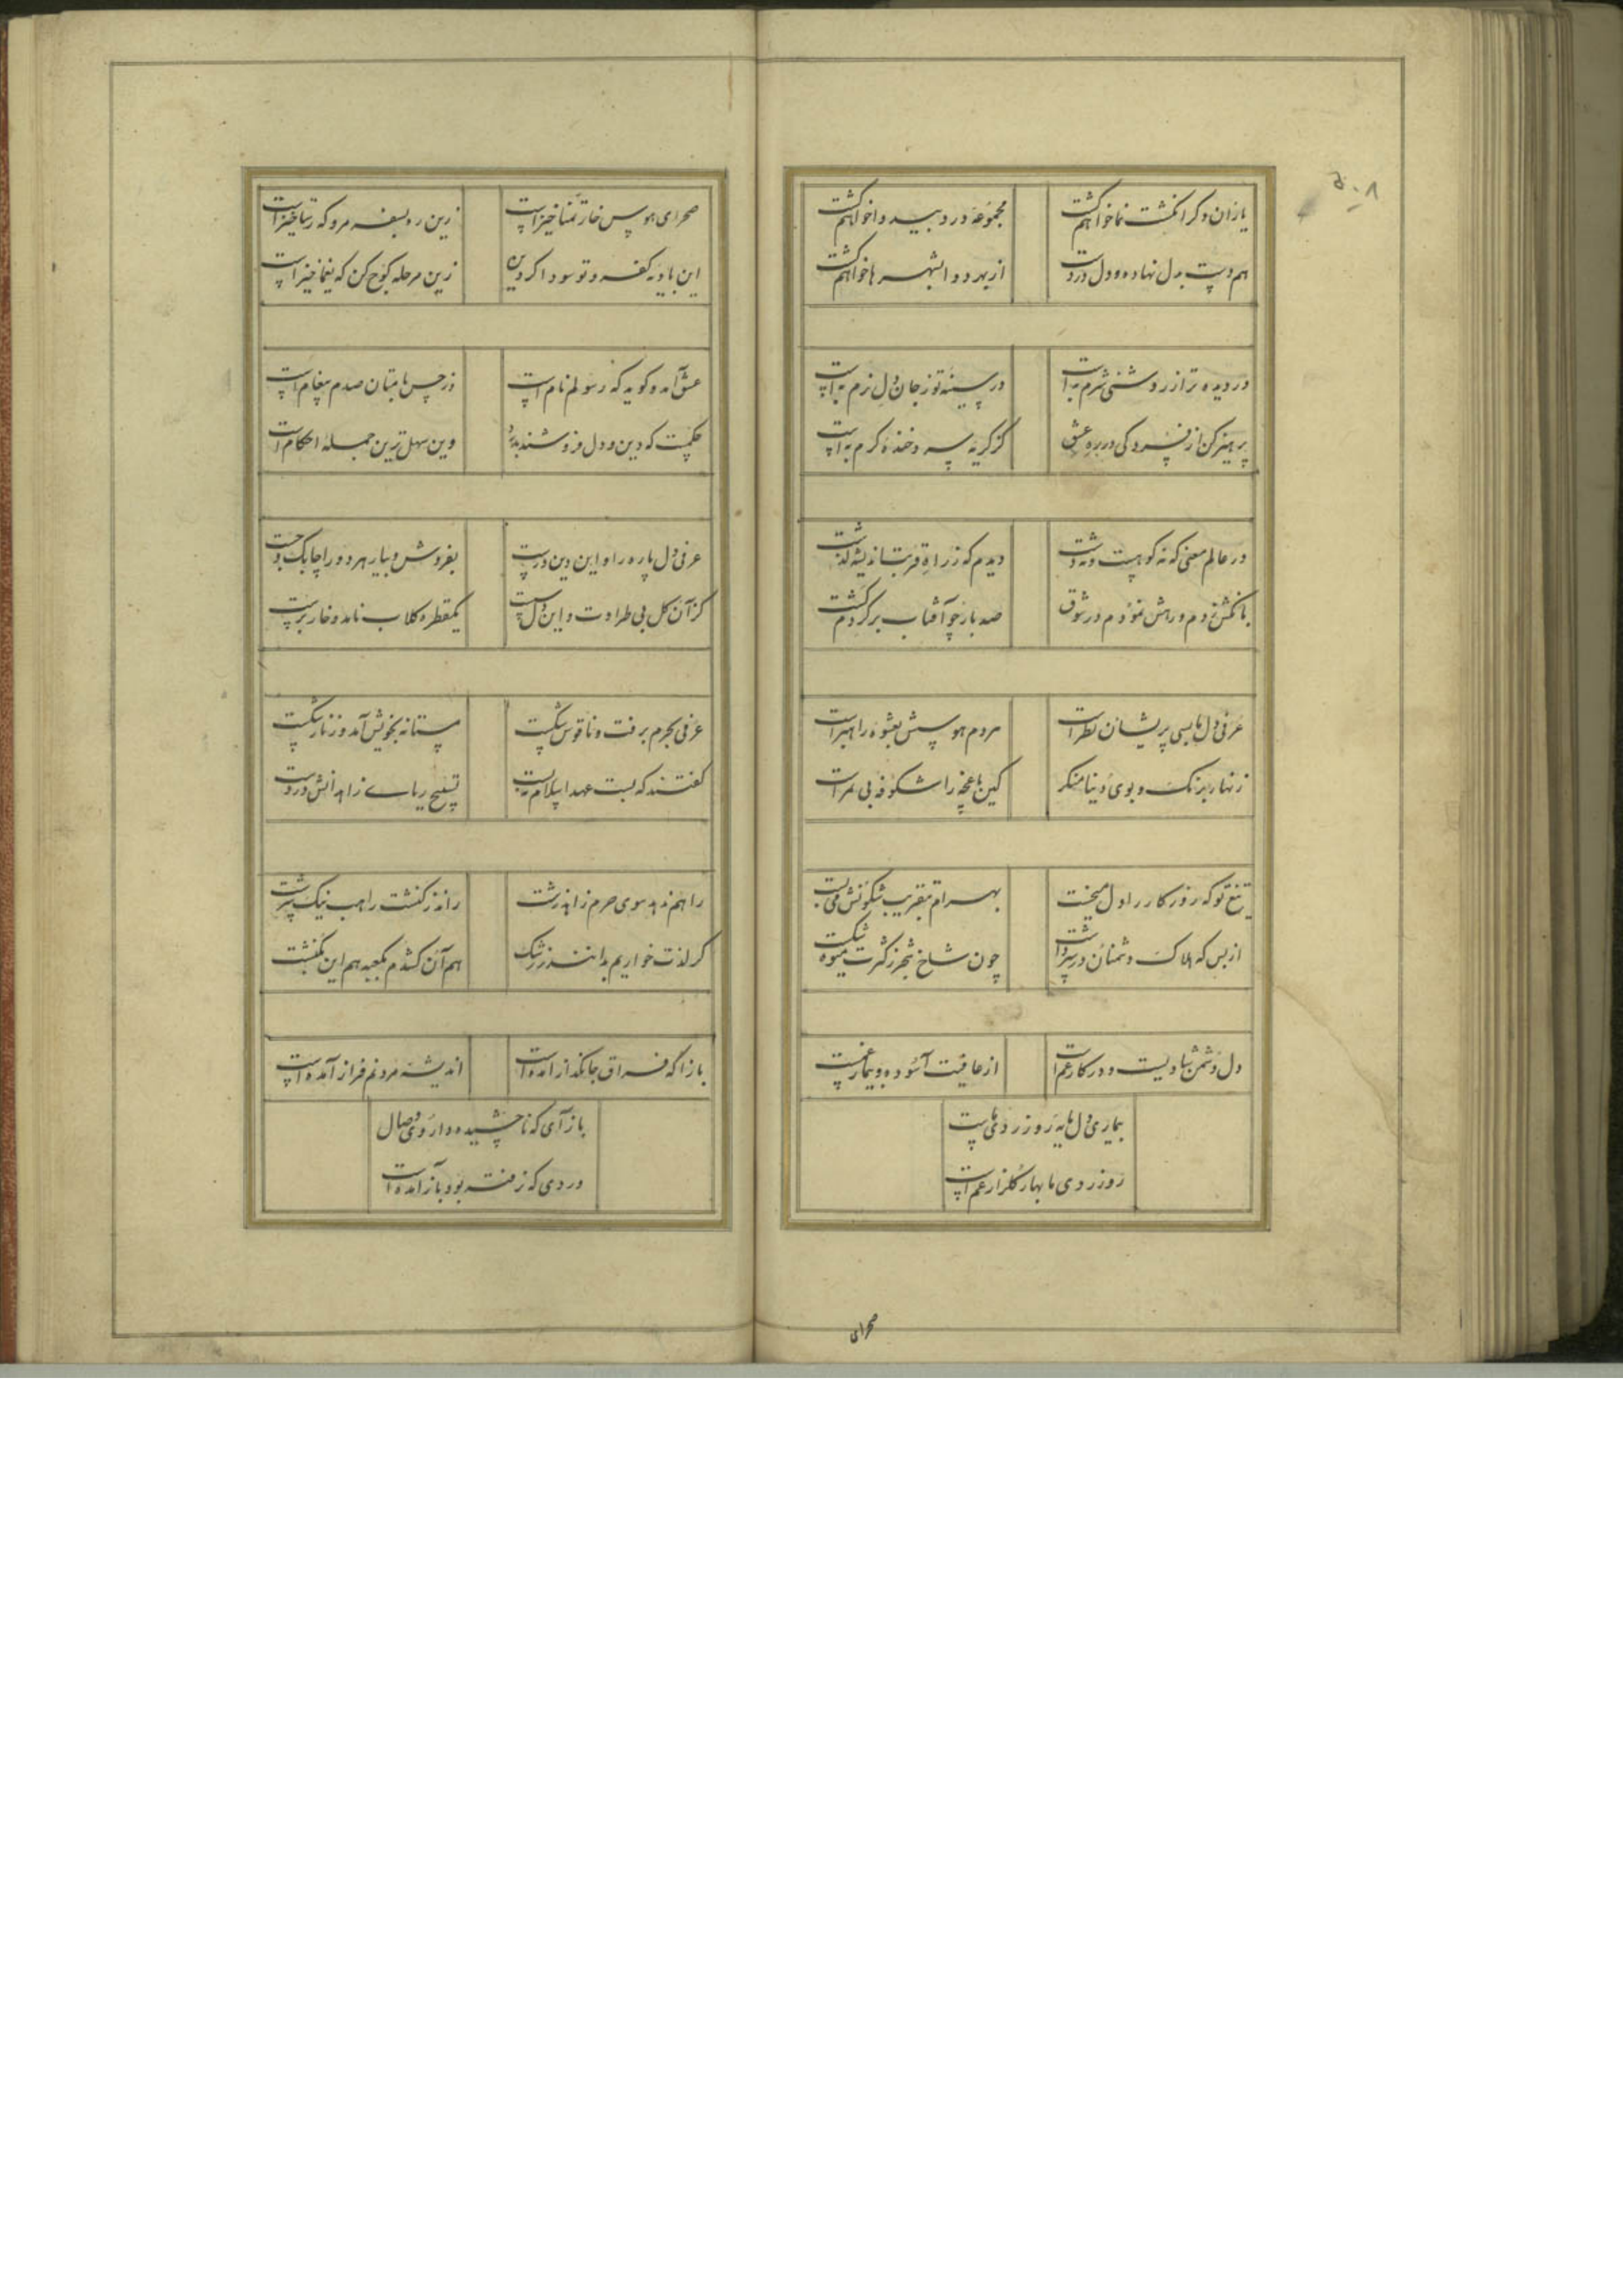 ۵۰۸
یاران دگر انگشت نما خواهم گشت
مجموعهٔ درد بیدوا خواهم گشت
هم دست بدل نهاده و دل در دست
از بهر دوا بشهرها خواهم گشت
در دیده تر از روشنی شرم به است
در سینه تو ز جان دل نرم به است
پرهیز کن از فسردگی در ره عشق
کز گریه سرد خندهٔ گرم به است
در عالم معنی که نه کوهست و نه دشت
دیدم که ز راه قربت اندیشه گذشت
بانگش زدم و راهش نمودم در شوق
صد بار چو آفتاب برگردم گشت
عرفی دل ما بسی پریشان نظر است
مردم هوسش بعشوه راهبر است
زنهار برنگ و بوی دنیا منگر
کین باغچه را شکوفه بی ثمر است
تیغ تو که روزگار را دل میخست
بهرام بتقریب شگونش می بست
از بس که هلاک دشمنان در سر داشت
چون شاخ شجر ز کثرت میوه شکست
دل دشمن شادیست و در کار غم است
از عافیت آسوده و بیمار غم است
بیماری دل مایه روز زردی ماست
روز زردی ما بهار گلزار غم است
صحرای
صحرای هوس خار تمنا خیز است
زین ره بسفر مرو که رستاخیز است
این بادیه کفر و تو سوداگر دین
زین مرحله کوچ کن که یغما خیز است
عشق آمد و گوید که رسولم نام است
وز حسن بامتان صدم پیغام است
حکمست که دین و دل فروشند بدرد
وین سهل ترین جمله احکام است
عرفی دل پاره را و این دین درست
بفروش و بیار هر دو را چابک و چست
کز آن گل بی طراوت و این دل سست
یکقطره گلاب نامد و خار برست
عرفی بحرم برفت و ناقوس شکست
مستانه بخویش آمد و زنار گسست
گفتند که بست عهد اسلام بست
تسبیح ریای زاهدانش در دست
راهم ندهد سوی حرم زاهد زشت
راند ز کنشت راهب نیک سرشت
گر لذت خواریم بدانند ز رشک
هم آن کشدم بکعبه هم این بکنشت
بازآ که فراق جانگداز آمده است
اندیشه مردنم فراز آمده است
باز آی که نا چشیده داروی وصال
دردی که نرفته بود باز آمده است